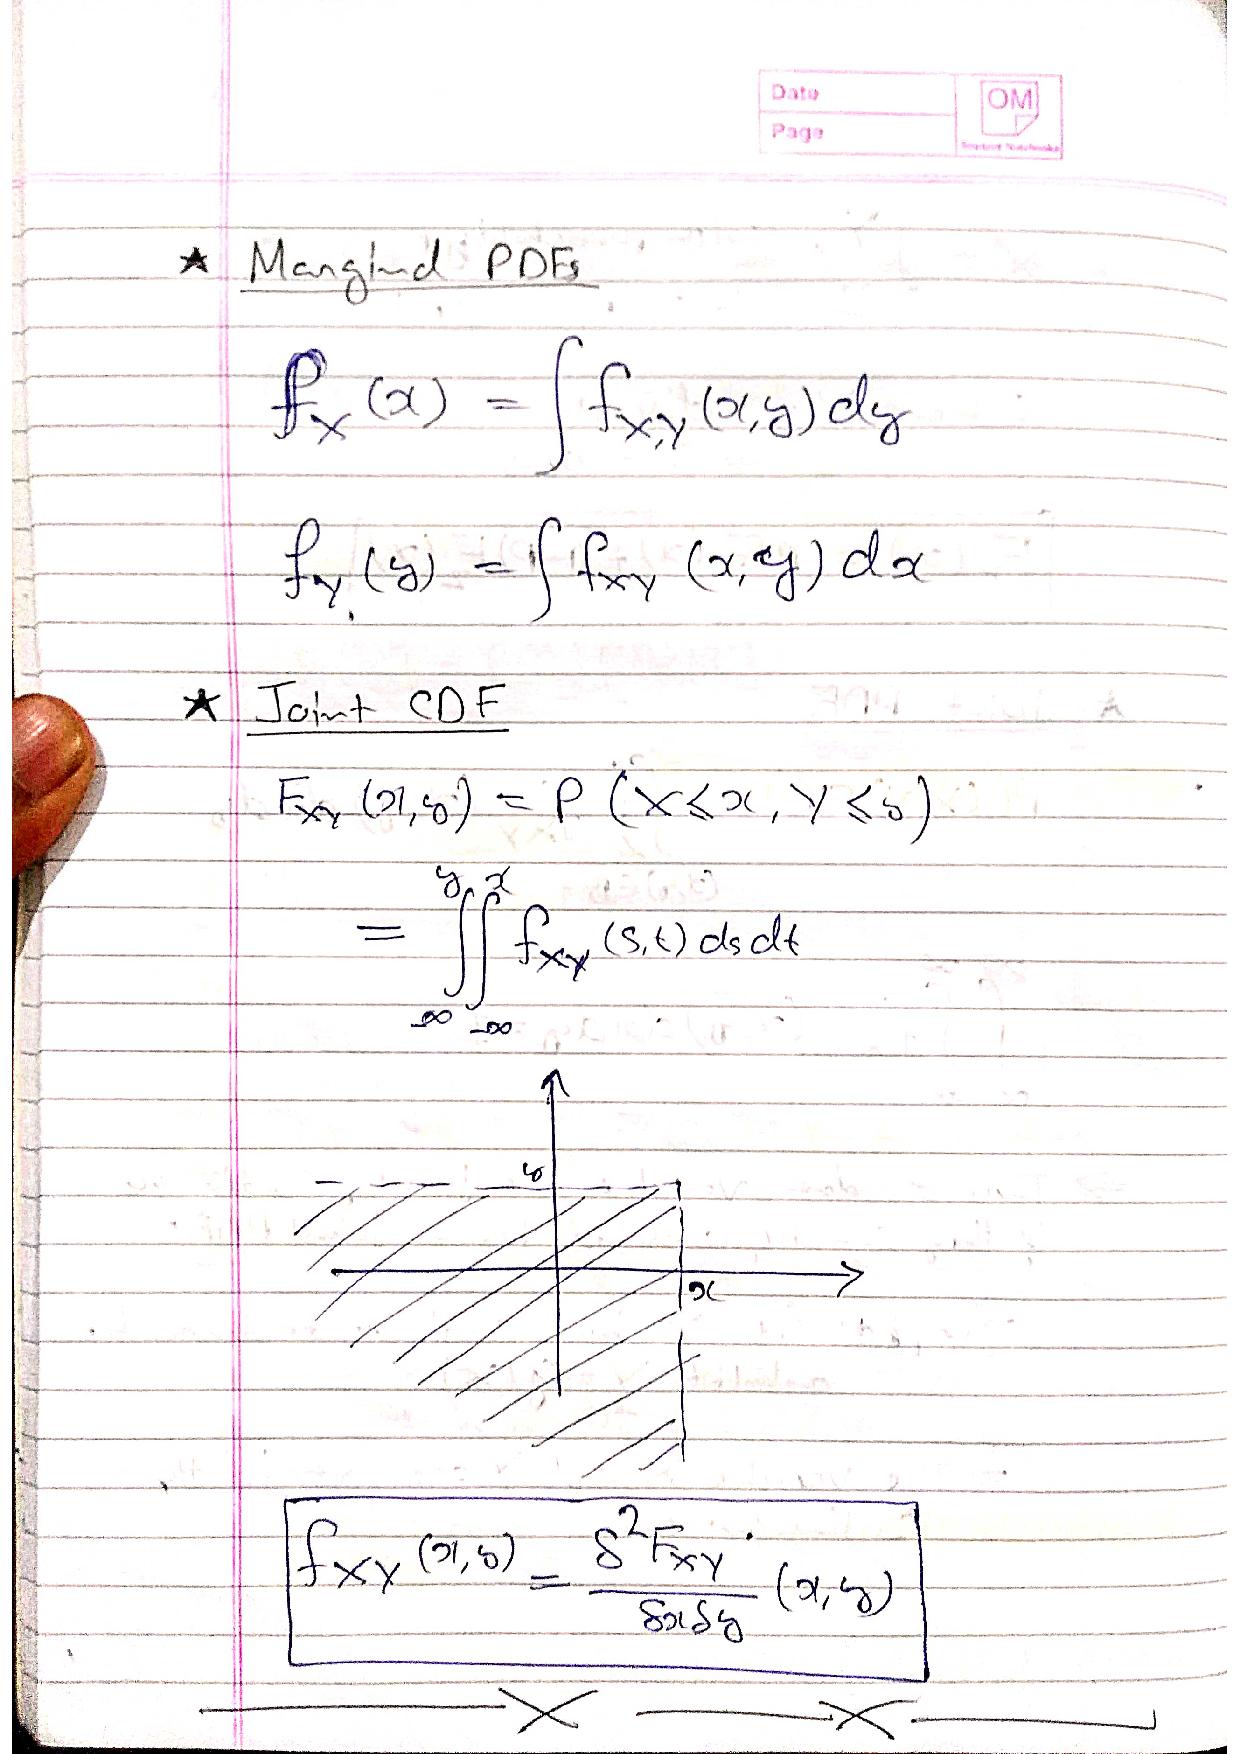 Date
OM
Page
★ Marginal PDFs
f_X (x) = ∫ f_{X,Y} (x,y) dy
f_Y (y) = ∫ f_{XY} (x,y) dx
★ Joint CDF
F_{XY} (x,y) = P (X≤x, Y≤y)
= ∫_{-∞}^{y} ∫_{-∞}^{x} f_{XY} (s,t) ds dt
y
x
f_{XY} (x,y) = δ²F_{XY} / δxδy (x,y)